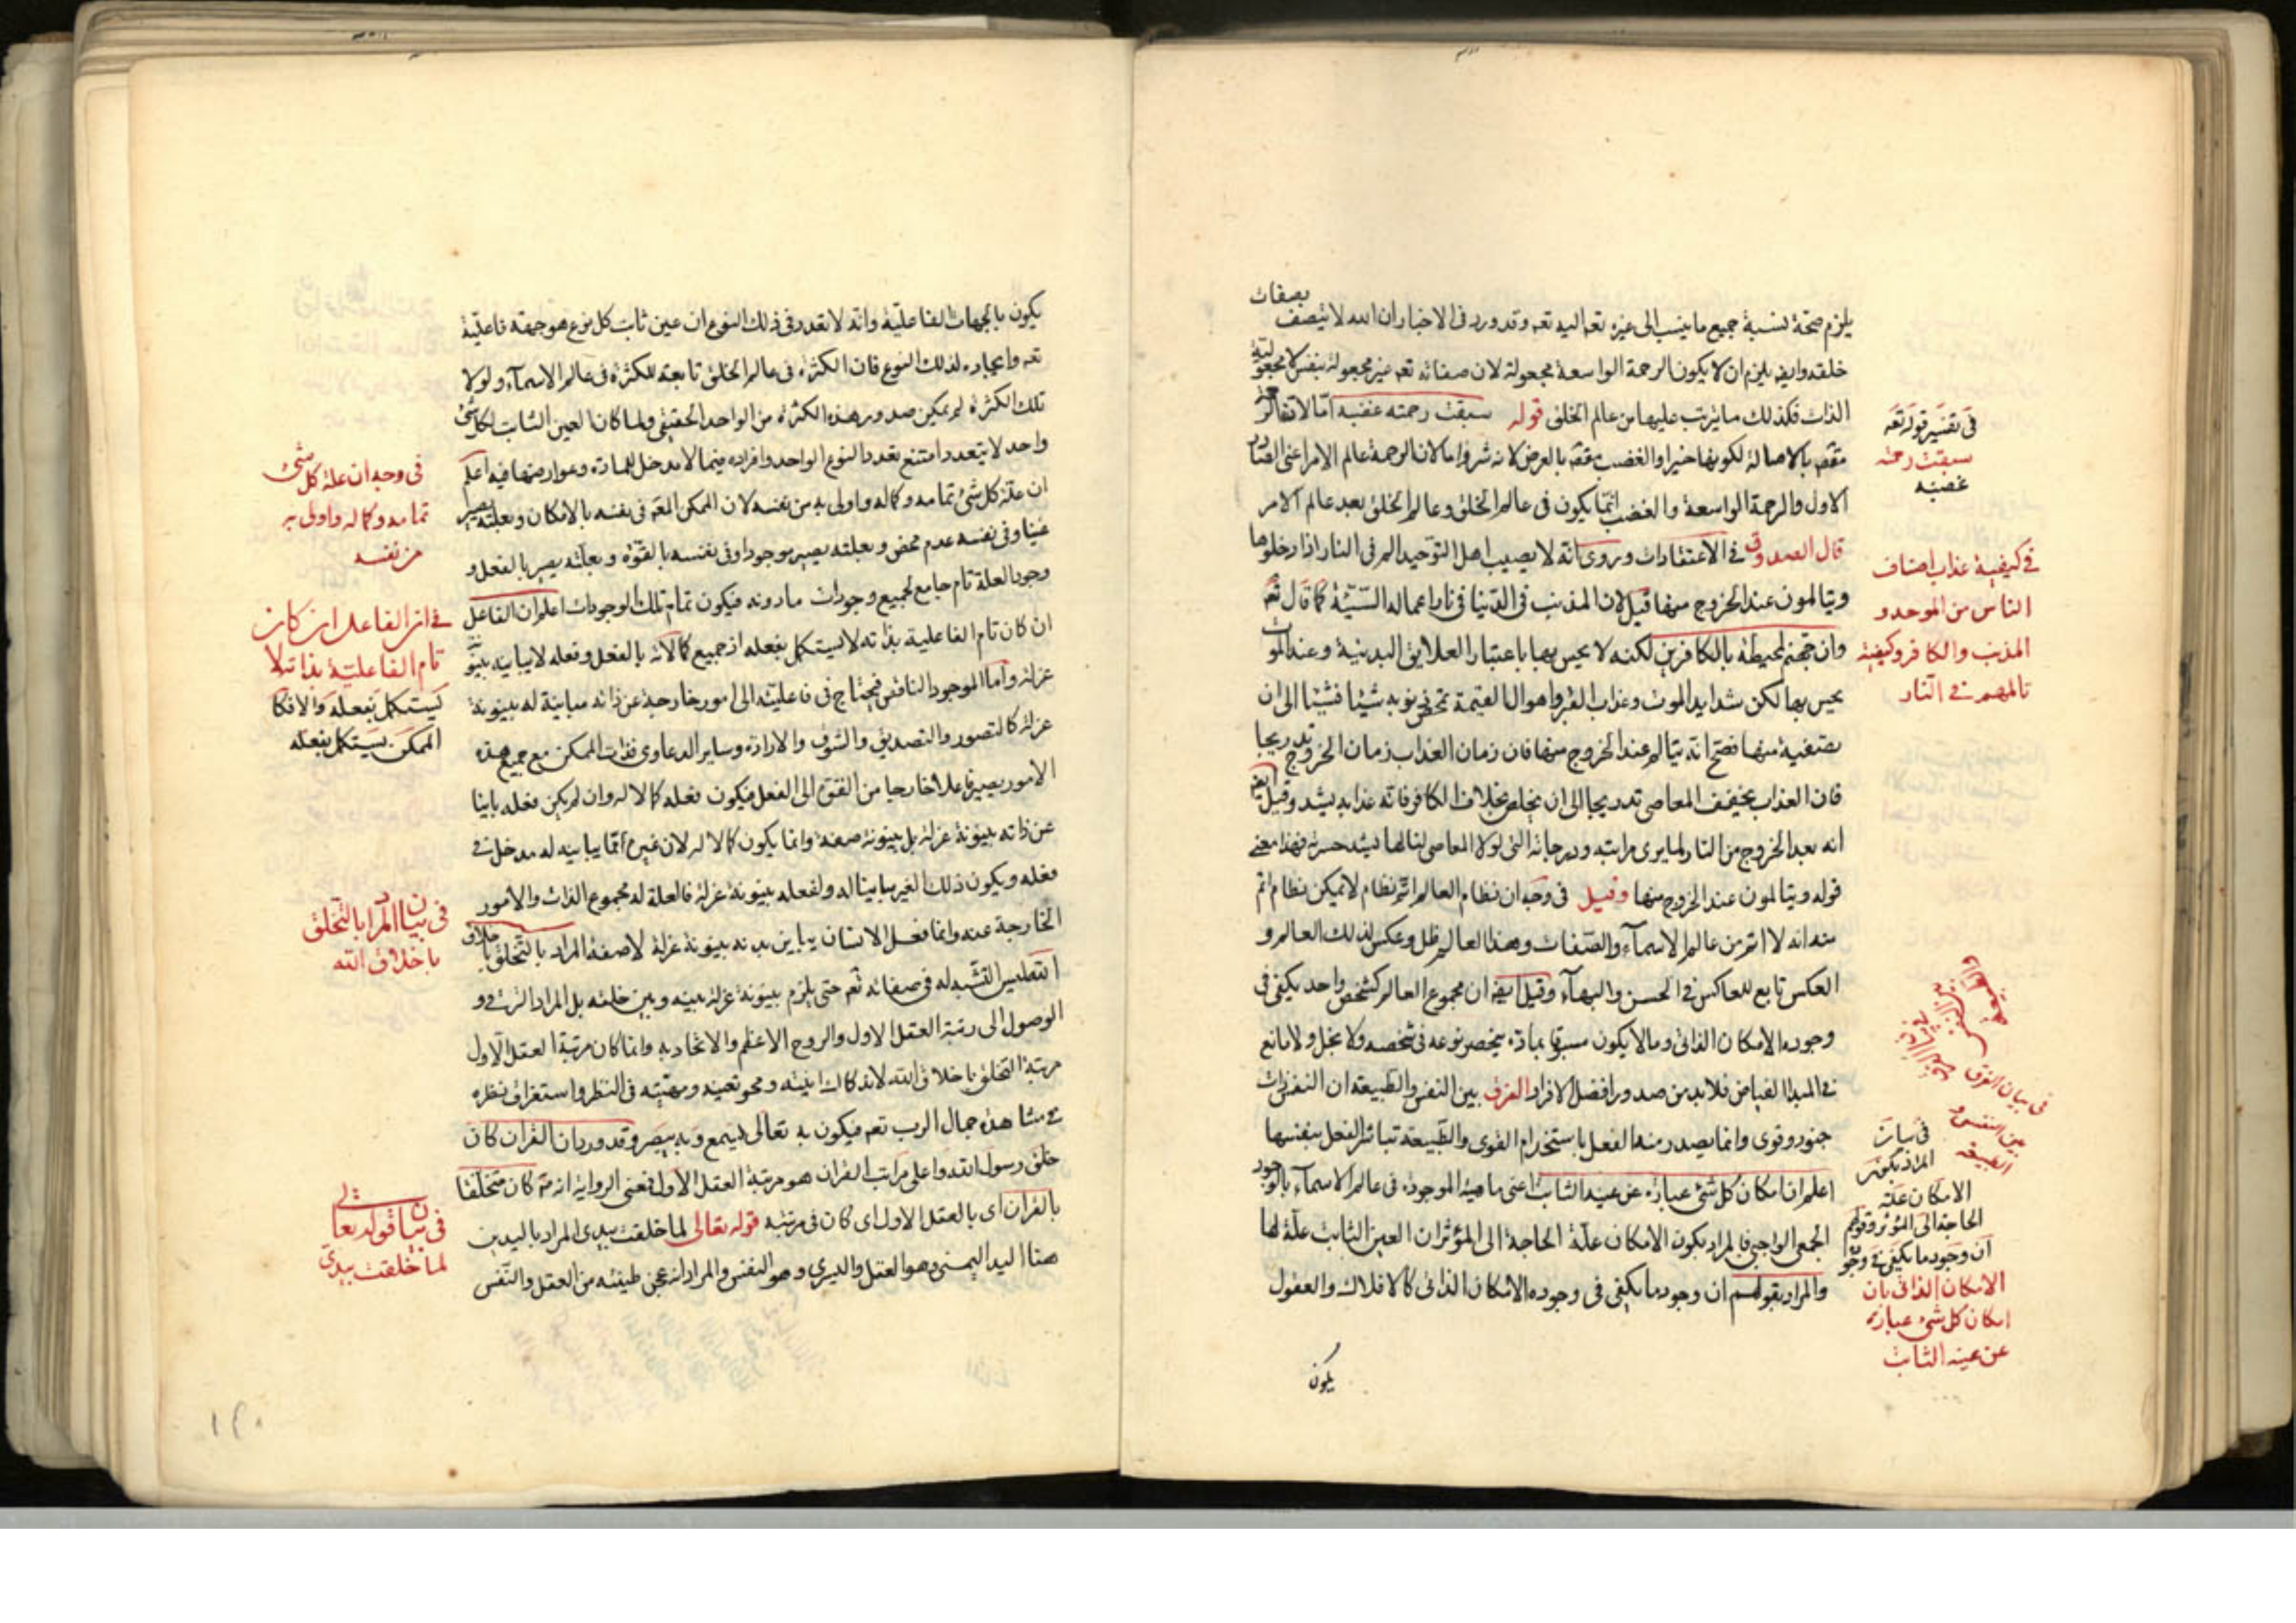 يلزم صحة نسبة جميع ما ينسب الى غيره تعه اليه تعه وقد ورد فى الاخبار ان الله لا يتصف بصفات
خلقه وايضه يلزم ان لا يكون الرحمة الواسعة مجعولة لان صفاته تعه غير مجعولة بنفس لا مجعولية
الذات فكذلك ما يترتب عليها من عالم الخلق قوله سبقت رحمته غضبه امّا لانها
مقضه بالاصالة لكونها خيرا والغضب مقضه بالعرض لانه شر واما لان الرحمة عالم الامر اعنى الصادر
الاول والرحمة الواسعة والغضب انّما يكون فى عالم الخلق وعالم الخلق بعد عالم الامر
قال الصدوق فى الاعتقادات وروى انّه لا يصيب اهل التوحيد الم فى النار اذا دخلوها
ويتالمون عند الخروج منها قيل لان المذنب فى الدّنيا فى نار اعماله السّيّئة كما قال تعه
وان جهنم لمحيطة بالكافرين لكنه لا يحس بها باعتبار العلايق البدنية وعند الموت
يحس بها لكن شدايد الموت وعذاب القبر واهوال القيمة تمحّض ذنوبه شيئا فشيئا الى ان
يصفيه منها فصح انه يتالم عند الخروج منها فان زمان العذاب زمان الخروج تدريجا
فان العذاب يخفف المعاصى تدريجا الى ان يخلص بخلاف الكافر فانه عذابه يشد وقيل ايضه
انه بعد الخروج من النار لما يرى مراتبه ودرجاته التى لولا المعاصى لنالها فيشد حسرته فهذا معنى
قوله ويتالمون عند الخروج منها وقيل فى وجه ان نظام العالم اتم نظام لا يمكن نظام اتم
منه انه لا اتم من عالم الاسمآء والصّفات وهذا العالم ظل وعكس لذلك العالم و
العكس تابع للعاكس فى الحسن والبهآء وقيل ايضه ان مجموع العالم كشخص واحد يكفى فى
وجوده الامكان الذاتى وما لا يكون مسبوقا بمادّة ينحصر نوعه فى شخصه ولا بخل ولا مانع
فى المبدا الفياض فلا بد من صدور افضل الافراد الفرق بين النفس والطبيعة ان النفس ذات
جنود وقوى وانما يصدر منها الفعل باستخدام القوى والطّبيعة تباشر الفعل بنفسها
اعلم ان امكان كل شئ عبارة عن عينه الثابت اعنى ماهيته الموجودة فى عالم الاسمآء بالوجود
الجمعى الواجبى فالمراد بكون الامكان علّة الحاجة الى المؤثر ان العين الثابت علّة لها
والمراد بقولهم ان وجود ما يكفى فى وجوده الامكان الذاتى كالافلاك والعقول
يكون
فى تفسير قوله تعه
سبقت رحمته
غضبه
فى كيفية عذاب اصناف
الناس من الموحد و
المذنب والكافر وكيفية
تالمهم فى النار
فى بيان الفرق
بين النفس و
الطبيعة
فى بيان
المراد بكون
الامكان علة
الحاجة الى المؤثر وقولهم
ان وجود ما يكفى فى وجوده
الامكان الذاتى بان
امكان كل شئ عبارة
عن عينه الثابت
يكون بالجهات الفاعلية وانّه لا تعدد فى ذلك النوع ان عين ثابت كل نوع هو جهة فاعليّة
تعه وايجاده لذلك النوع فان الكثرة فى عالم الخلق تابعة للكثرة فى عالم الاسمآء ولولا
تلك الكثرة لم يمكن صدور هذه الكثرة من الواحد الحقيقى ولما كان العين الثابت لكل شئ
واحد لا يتعدد امتنع تعدد النوع الواحد وافراده فيما لا مدخل للمادّة وعوارضها فيه اعلم
ان علّة كل شئ تمامه وكماله واولى به من نفسه لان الممكن المقه فى نفسه بالامكان وبعلته يصير
غنيا وفى نفسه عدم محض وبعلته يصير موجودا وفى نفسه بالقوّة وبعلته يصير بالفعل و
وجود العلة تام جامع لجميع وجودات مادونه فيكون تمام تلك الوجودات اعلم ان الفاعل
ان كان تام الفاعلية بذاته لا يستكمل بفعله اذ جميع كمالاته بالفعل وفعله لا يباينه بينونة
عزلة واما الموجود الناقص فيحتاج فى فاعليّته الى امور خارجة عن ذاته مباينة له بينونة
عزلة كالتصور والتصديق والشوق والارادة وساير الدعاوى فذات الممكن مع جميع هذه
الامور يصير فاعلا خارجا من القوّة الى الفعل فيكون فعله كمالا له وان لم يكن فعله باينا
عن ذاته بينونة عزلة بل بينونة صفة وانما يكون كمالا له لان غيره امّا يباينه له مدخل فى
فعله ويكون ذلك الغير مباينا له ولفعله بينونة عزلة فالعلة له مجموع الذات والامور
الخارجة عنه وانما فعل الانسان يباين بدنه بينونة عزلة لا صفة المراد بالتخلق باخلاق
الله ليس التشبه له فى صفاته تعه حتى يلزم بينونة عزلة بينه وبين خلقه بل المراد الترقى و
الوصول الى رتبة العقل الاول والروح الاعظم والاتحاد به وانما كان مرتبة العقل الاول
مرتبة التخلق باخلاق الله لاندكاك انيته ومحو تعينه ومهيّته فى النظر واستغراق نظره
فى مشاهدة جمال الرب تعه فيكون به تعالى يسمع وبه يبصر وقد ورد ان القران كان
خلق رسول الله واعلى مراتب القران هو مرتبة العقل الاول فمعنى الرواية انه صه كان متخلقا
بالقران اى بالعقل الاول اى كان فى مرتبته قوله تعالى لما خلقت بيدى المراد باليدين
هنا اليد اليمنى وهو العقل واليسرى وهو النفس والمراد انه عجن طينته من العقل والنّفس
فى وجه ان علة كل شئ
تمامه وكماله واولى به
من نفسه
فى ان الفاعل ان كان
تام الفاعليّة بذاته لا
يستكمل بفعله والا فكا
الممكن يستكمل بفعله
فى بيان المراد بالتخلق
باخلاق الله
فى بيان قوله تعالى
لما خلقت بيدى